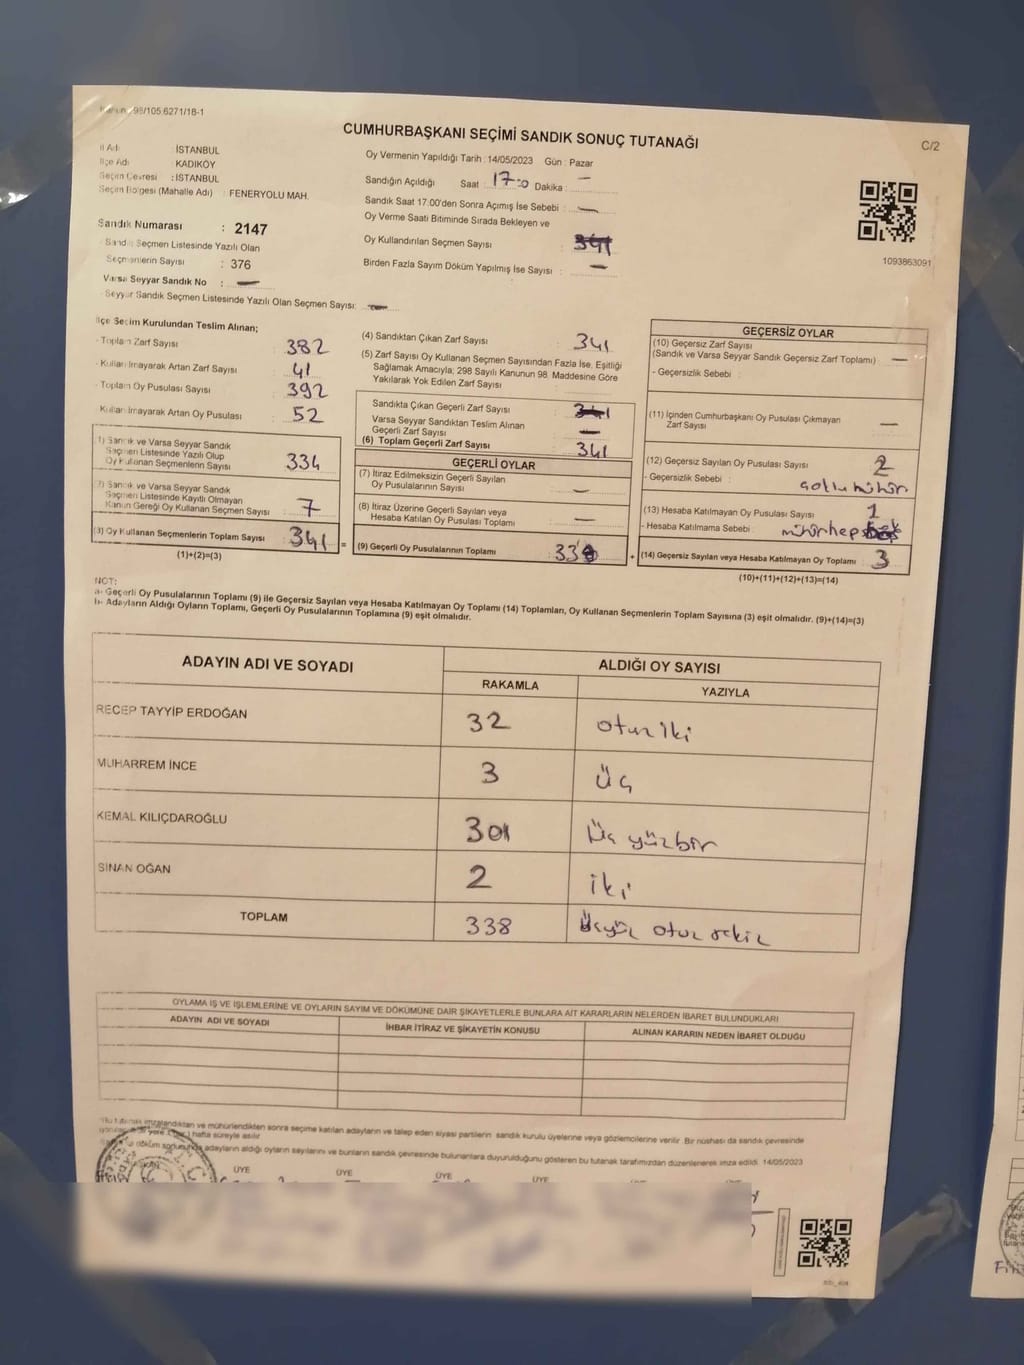 98/105.6271/18-1
CUMHURBAŞKANI SEÇİMİ SANDIK SONUÇ TUTANAĞI
C/2
İl Adı : İSTANBUL
İlçe Adı : KADIKÖY
Seçim Çevresi : İSTANBUL
Seçim Bölgesi (Mahalle Adı) : FENERYOLU MAH.
Sandık Numarası : 2147
Sandık Seçmen Listesinde Yazılı Olan
Seçmenlerin Sayısı : 376
Varsa Seyyar Sandık No : —
Seyyar Sandık Seçmen Listesinde Yazılı Olan Seçmen Sayısı: —
Oy Vermenin Yapıldığı Tarih : 14/05/2023 Gün : Pazar
Sandığın Açıldığı Saat : 17:0 Dakika : —
Sandık Saat 17.00'den Sonra Açımış İse Sebebi : —
Oy Verme Saati Bitiminde Sırada Bekleyen ve
Oy Kullandırılan Seçmen Sayısı :
Birden Fazla Sayım Döküm Yapılmış İse Sayısı : —
1093863091
İlçe Seçim Kurulundan Teslim Alınan;
- Toplam Zarf Sayısı : 382
- Kullanılmayarak Artan Zarf Sayısı : 41
- Toplam Oy Pusulası Sayısı : 392
- Kullanılmayarak Artan Oy Pusulası : 52
(1) Sandık ve Varsa Seyyar Sandık
Seçmen Listesinde Yazılı Olup
Oy Kullanan Seçmenlerin Sayısı : 334
(2) Sandık ve Varsa Seyyar Sandık
Seçmen Listesinde Kayıtlı Olmayan
Kanun Gereği Oy Kullanan Seçmen Sayısı : 7
(3) Oy Kullanan Seçmenlerin Toplam Sayısı : 341
(1)+(2)=(3)
=
(4) Sandıktan Çıkan Zarf Sayısı : 341
(5) Zarf Sayısı Oy Kullanan Seçmen Sayısından Fazla İse, Eşitliği
Sağlamak Amacıyla; 298 Sayılı Kanunun 98. Maddesine Göre
Yakılarak Yok Edilen Zarf Sayısı :
Sandıkta Çıkan Geçerli Zarf Sayısı : 341
Varsa Seyyar Sandıktan Teslim Alınan
Geçerli Zarf Sayısı : —
(6) Toplam Geçerli Zarf Sayısı : 341
GEÇERLİ OYLAR
(7) İtiraz Edilmeksizin Geçerli Sayılan
Oy Pusulalarının Sayısı : —
(8) İtiraz Üzerine Geçerli Sayılan veya
Hesaba Katılan Oy Pusulası Toplamı : —
(9) Geçerli Oy Pusulalarının Toplamı : 338
+
GEÇERSİZ OYLAR
(10) Geçersiz Zarf Sayısı
(Sandık ve Varsa Seyyar Sandık Geçersiz Zarf Toplamı) : —
- Geçersizlik Sebebi :
(11) İçinden Cumhurbaşkanı Oy Pusulası Çıkmayan
Zarf Sayısı : —
(12) Geçersiz Sayılan Oy Pusulası Sayısı : 2
- Geçersizlik Sebebi :
(13) Hesaba Katılmayan Oy Pusulası Sayısı : 1
- Hesaba Katılmama Sebebi :
(14) Geçersiz Sayılan veya Hesaba Katılmayan Oy Toplamı : 3
(10)+(11)+(12)+(13)=(14)
NOT:
a- Geçerli Oy Pusulalarının Toplamı (9) ile Geçersiz Sayılan veya Hesaba Katılmayan Oy Toplamı (14) Toplamları, Oy Kullanan Seçmenlerin Toplam Sayısına (3) eşit olmalıdır. (9)+(14)=(3)
b- Adayların Aldığı Oyların Toplamı, Geçerli Oy Pusulalarının Toplamına (9) eşit olmalıdır.
ADAYIN ADI VE SOYADI
ALDIĞI OY SAYISI
RAKAMLA YAZIYLA
RECEP TAYYİP ERDOĞAN 32 otuz iki
MUHARREM İNCE 3 üç
KEMAL KILIÇDAROĞLU 301 üç yüzbir
SİNAN OĞAN 2 iki
TOPLAM 338 üçyüz otuz sekiz
OYLAMA İŞ VE İŞLEMLERİNE VE OYLARIN SAYIM VE DÖKÜMÜNE DAİR ŞİKAYETLERLE BUNLARA AİT KARARLARIN NELERDEN İBARET BULUNDUKLARI
ADAYIN ADI VE SOYADI İHBAR İTİRAZ VE ŞİKAYETİN KONUSU ALINAN KARARIN NEDEN İBARET OLDUĞU
Bu tutanak imzalandıktan ve mühürlendikten sonra seçime katılan adayların ve talep eden siyasi partilerin sandık kurulu üyelerine veya gözlemcilerine verilir. Bir nüshası da sandık çevresinde
hafta süreyle asılır.
döküm adayların aldığı oyların sayılarını ve bunların sandık çevresinde bulunanlara duyurulduğunu gösteren bu tutanak tarafımızdan düzenlenerek imza edildi. 14/05/2023
ÜYE ÜYE ÜYE ÜYE